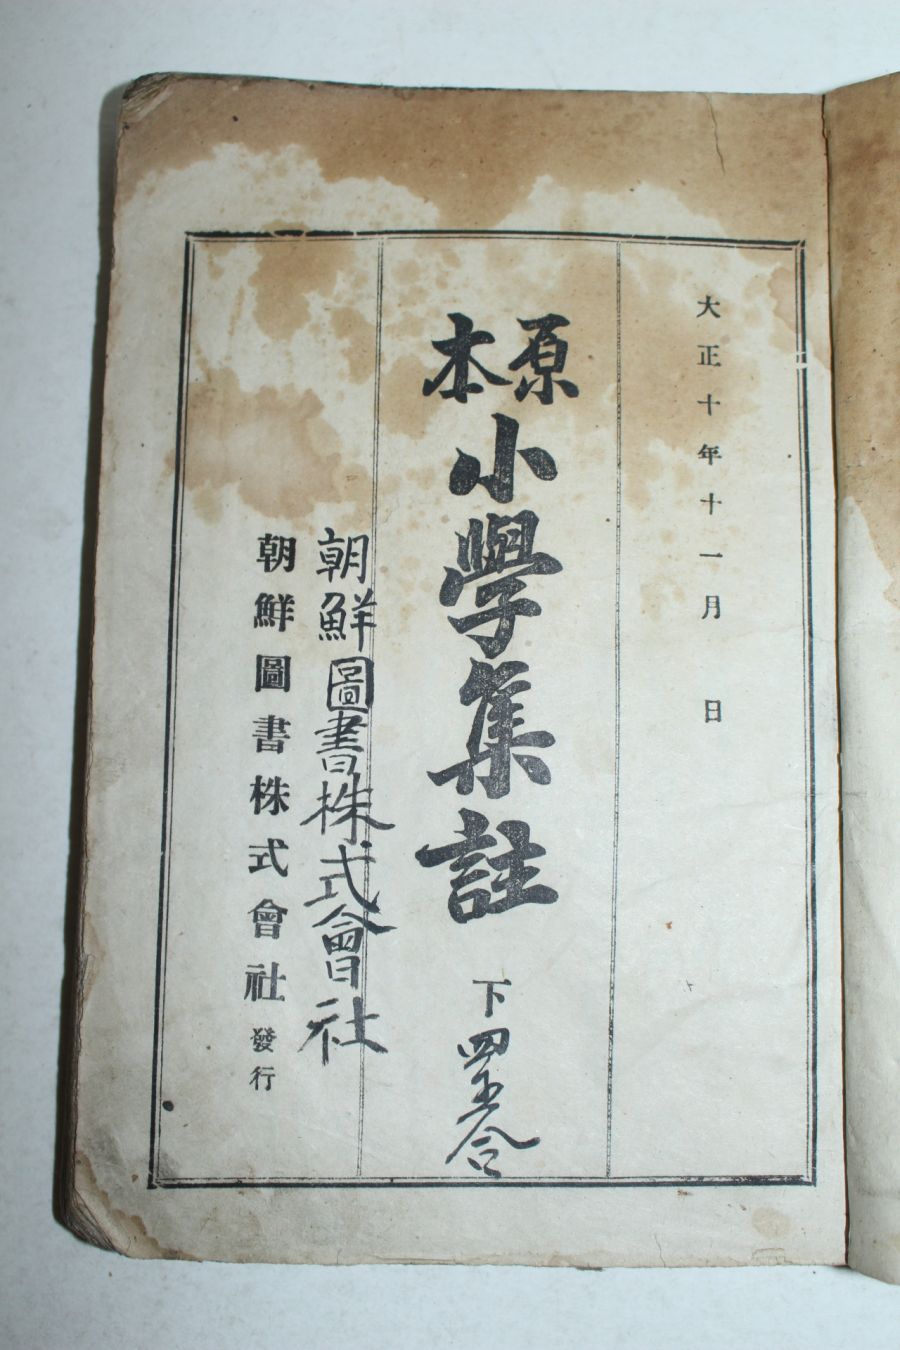 大正十年十一月 日
原本
小學集註 下
四五合
朝鮮圖書株式會社
朝鮮圖書株式會社發行